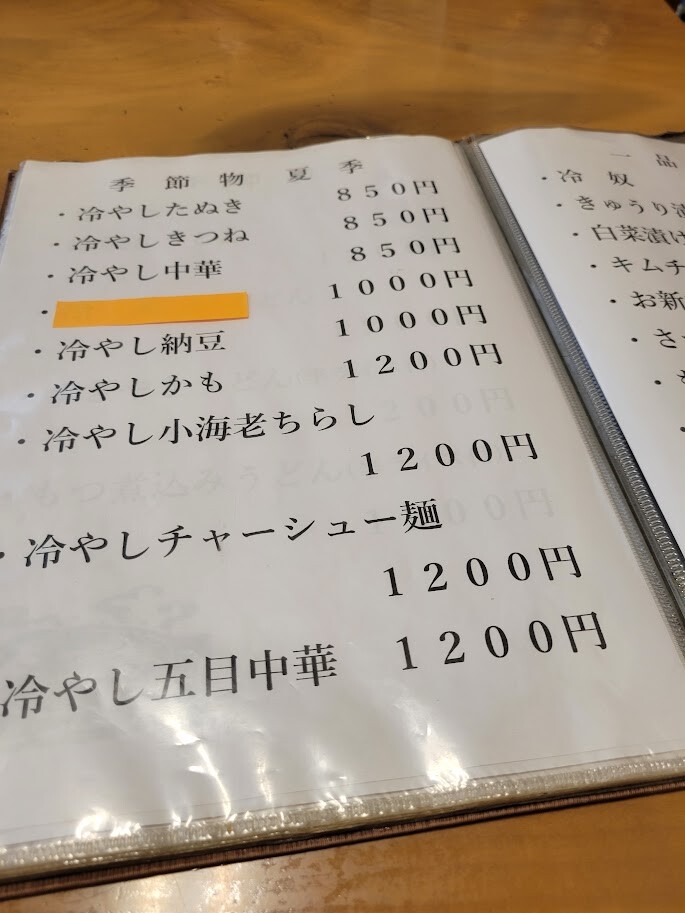 季節物 夏季
・冷やしたぬき 850円
・冷やしきつね 850円
・冷やし中華 850円
・ 1000円
・冷やし納豆 1000円
・冷やしかも 1200円
・冷やし小海老ちらし
1200円
・冷やしチャーシュー麺
1200円
冷やし五目中華 1200円
一品
・冷奴
・きゅうり漬
・白菜漬け
・キムチ
・お新
・さ